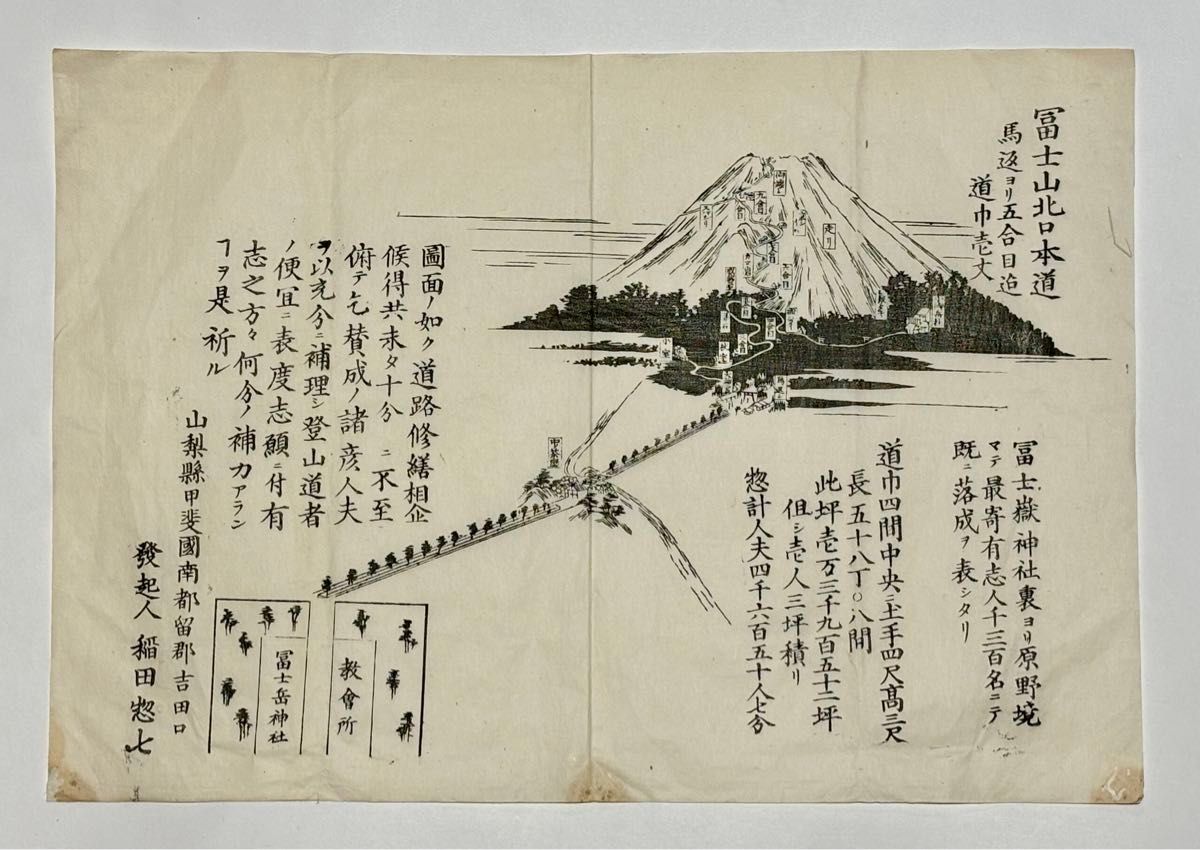 冨士山北口本道
馬返ヨリ五合目迠
道巾壱丈
冨士嶽神社裏ヨリ原野境
マテ最寄有志人千三百名ニテ
既ニ落成ヲ表シタリ
道巾四間中央ニ土手四尺高三尺
長五十八丁〇八間
此坪壱万三千九百五十二坪
但シ壱人三坪積リ
惣計人夫四千六百五十人七分
走リ
九合目
六合目
中茶屋
圖面ノ如ク道路修繕相企
候得共未タ十分ニ不至
俯テ乞賛成ノ諸彦人夫
ヲ以充分ニ補理シ登山道者
ノ便宜ニ表度志願ニ付有
志之方々何分ノ補力アラン
ヿヲ是祈ル
教會所
冨士岳神社
山梨縣甲斐國南都留郡吉田口
發起人 稲田惣七